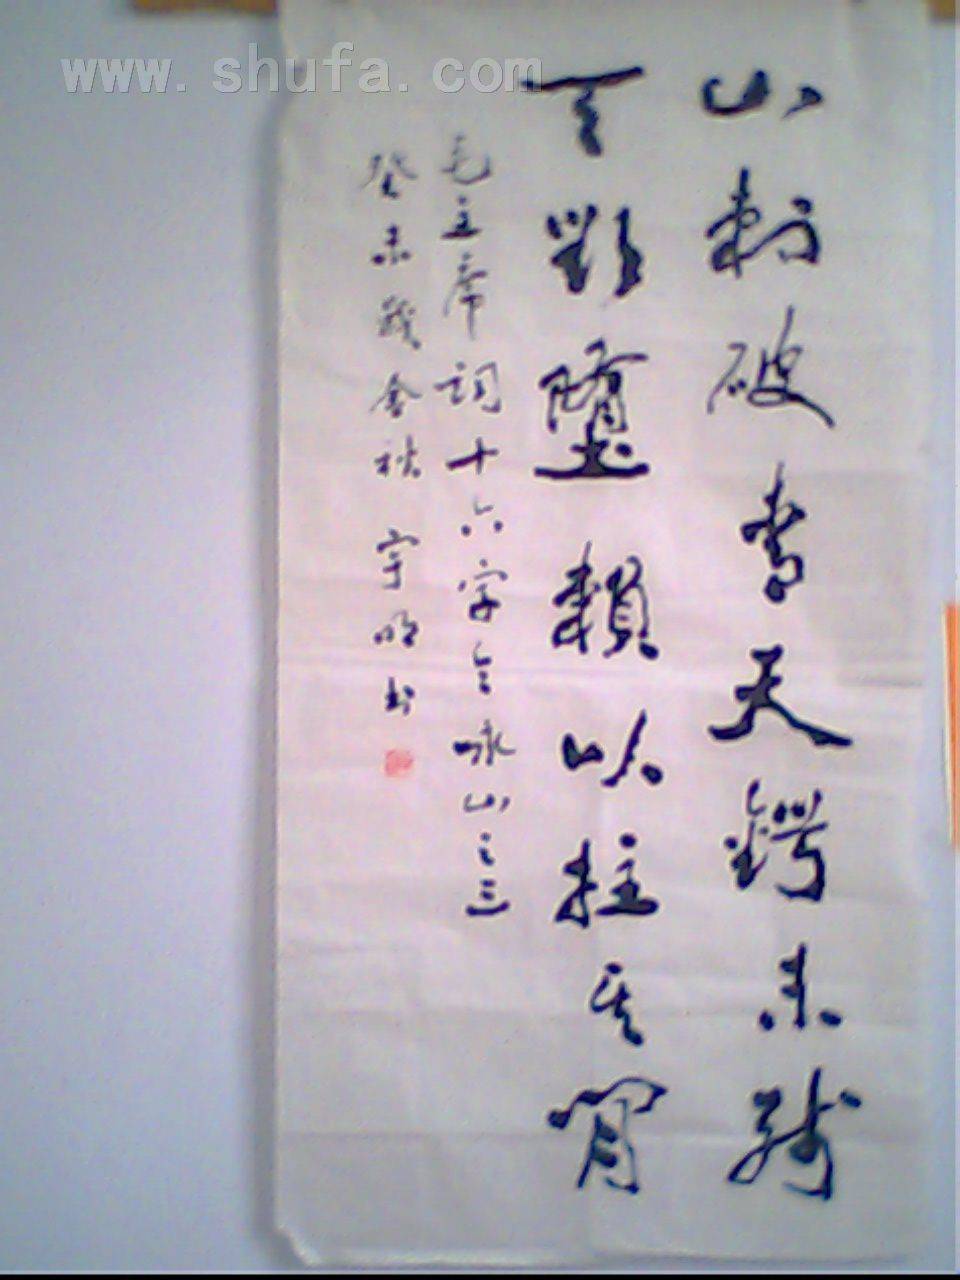 www.shufa.com
山刺破青天鍔未殘
天欲墮賴以拄其閒
毛主席詞十六字令咏山之三
癸未歲金秋 宇明书